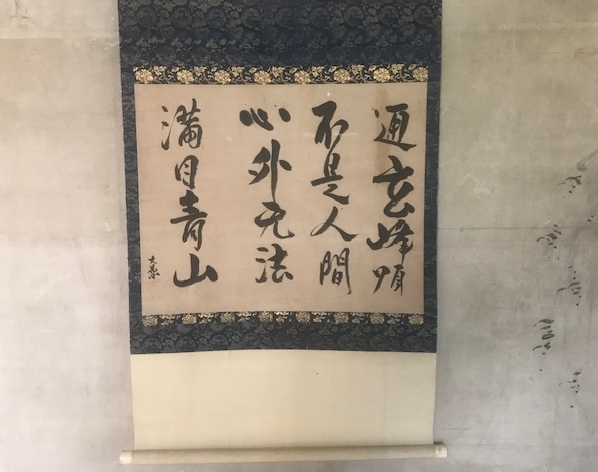 通玄峰頂
不是人間
心外无法
満目青山